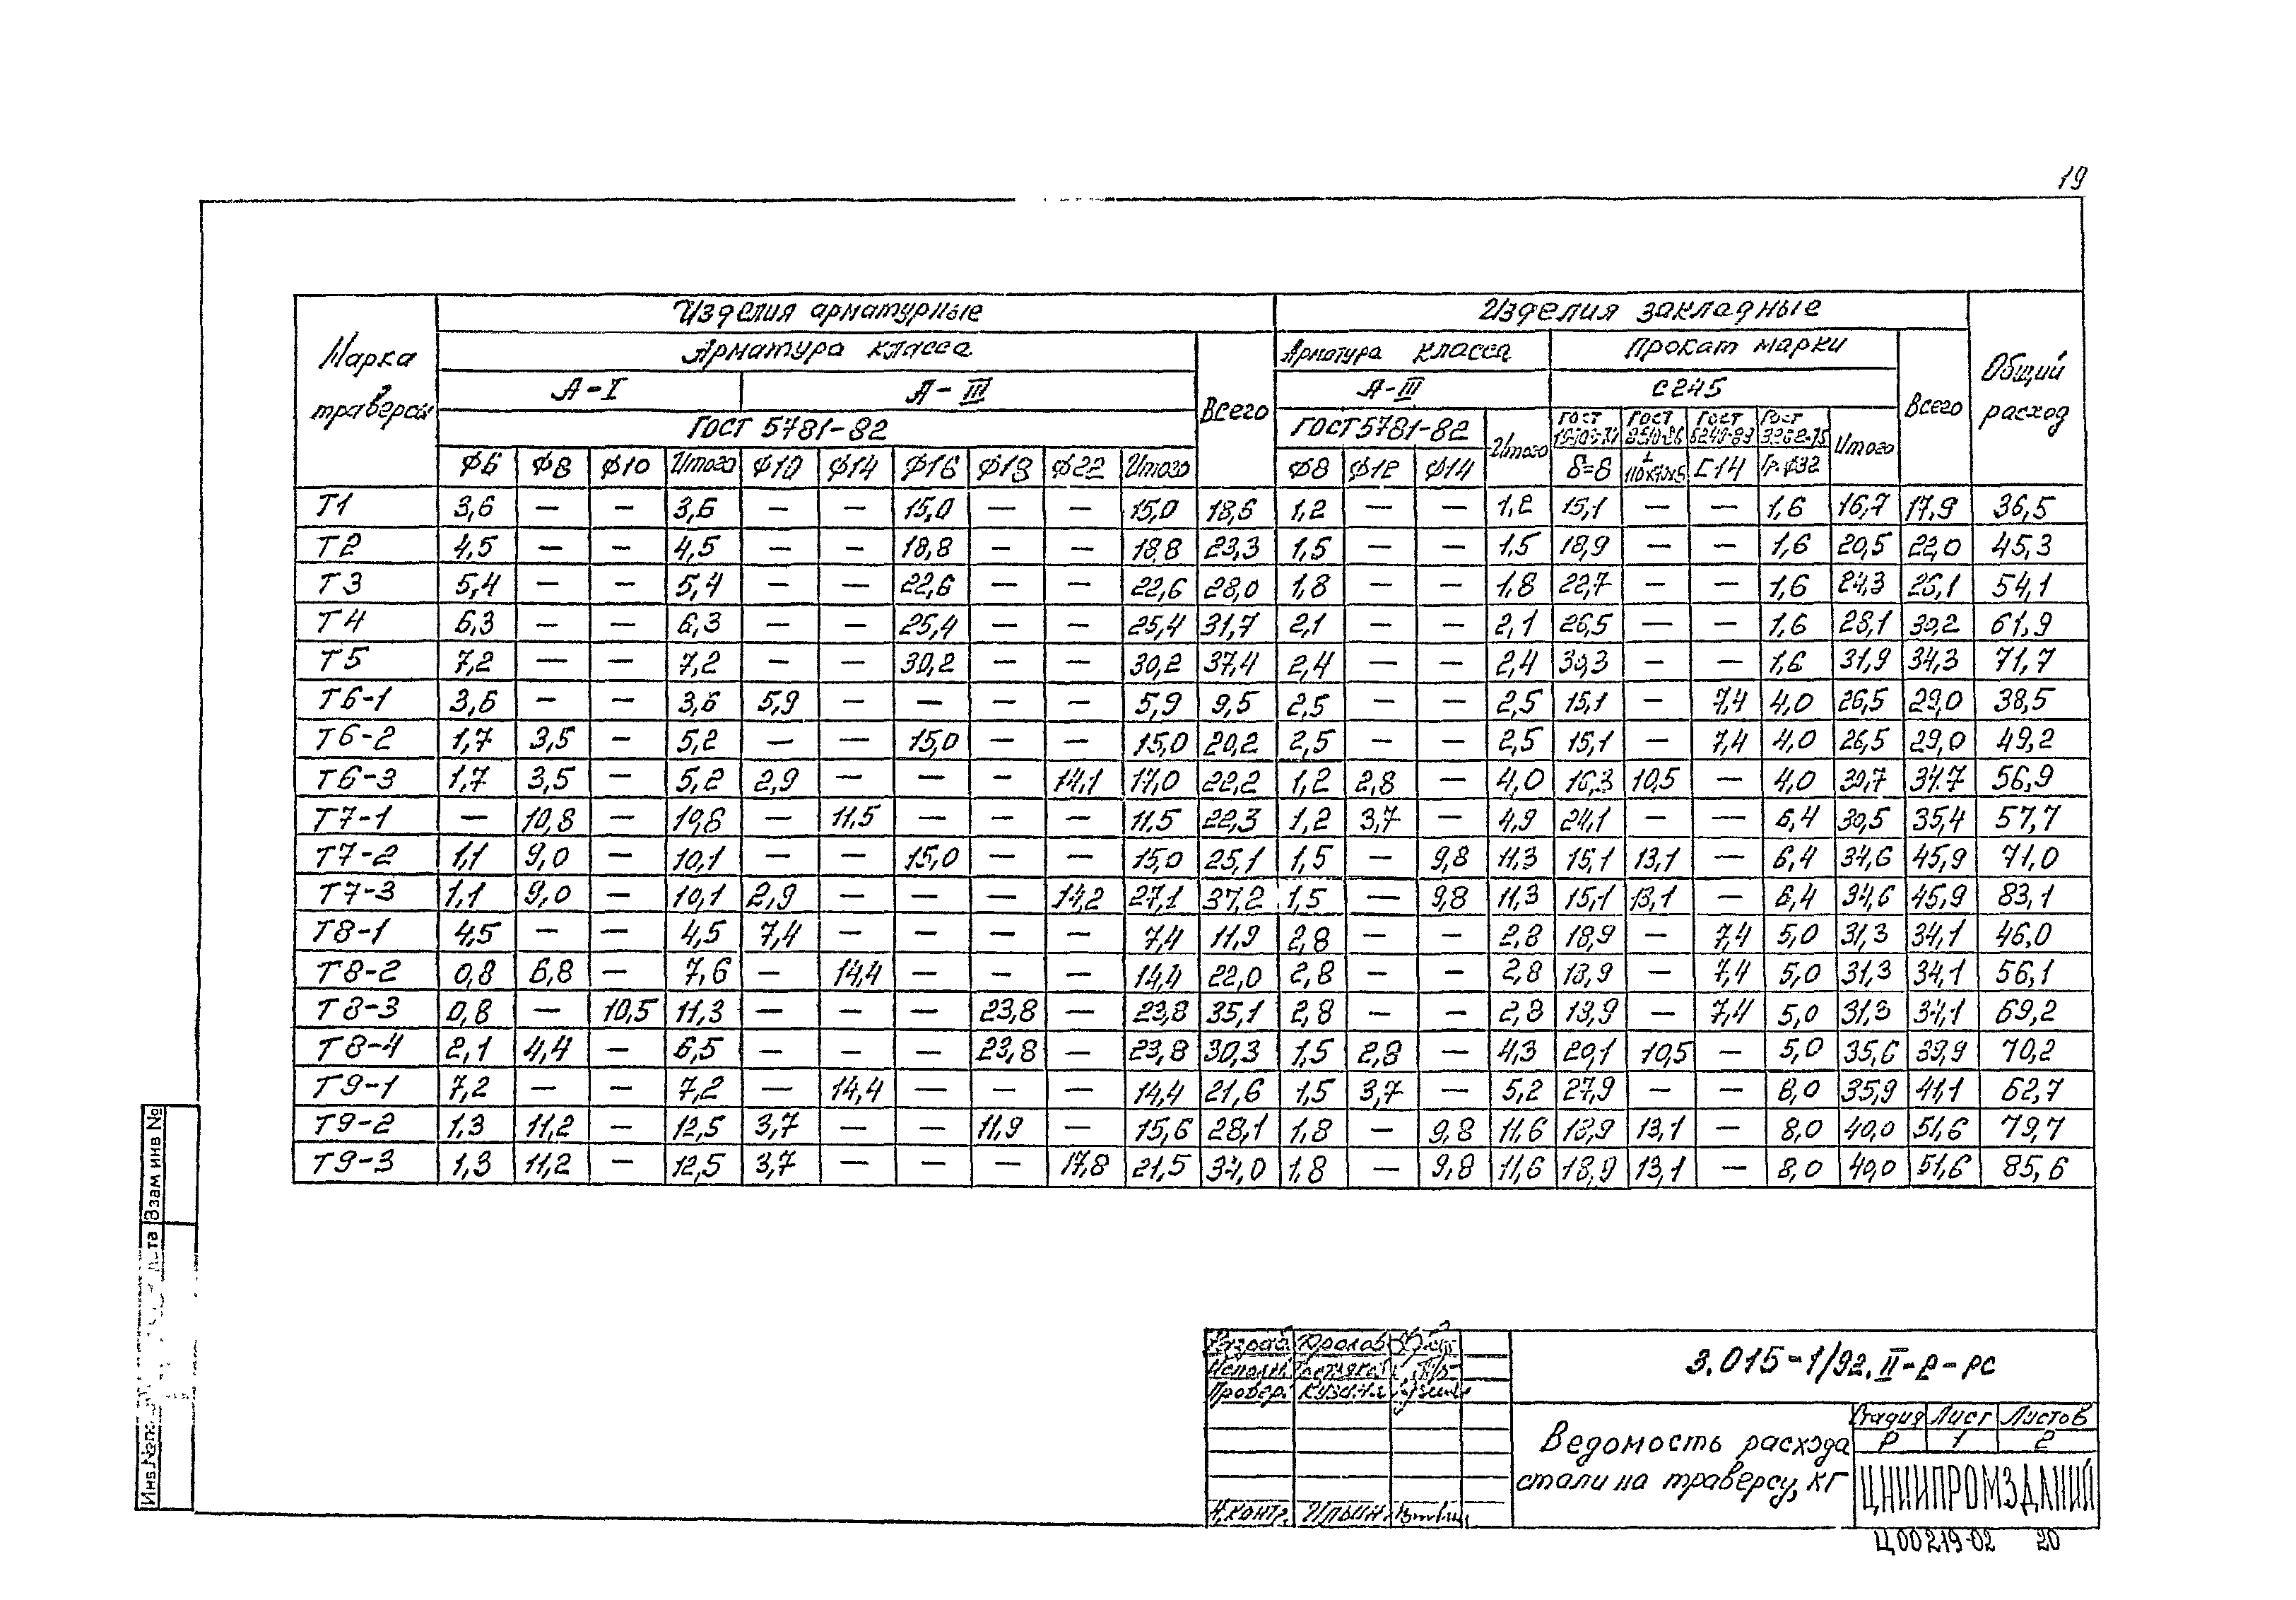 19
Изделия арматурные Изделия закладные
Марка траверсы Арматура класса Всего Арматура класса Прокат марки Всего Общий расход
А-I А-III А-III С245
ГОСТ 5781-82 ГОСТ 5781-82 Итого ГОСТ ГОСТ ГОСТ ГОСТ Итого
Ф6 Ф8 Ф10 Итого Ф10 Ф14 Ф16 Ф18 Ф22 Итого Ф8 Ф12 Ф14 δ=8 [14 Ф32
Т1 3,6 — — 3,6 — — 15,0 — — 15,0 18,6 1,2 — — 1,2 15,1 — — 1,6 16,7 17,9 36,5
Т2 4,5 — — 4,5 — — 18,8 — — 18,8 23,3 1,5 — — 1,5 18,9 — — 1,6 20,5 22,0 45,3
Т3 5,4 — — 5,4 — — 22,6 — — 22,6 28,0 1,8 — — 1,8 22,7 — — 1,6 24,3 26,1 54,1
Т4 6,3 — — 6,3 — — 25,4 — — 25,4 31,7 2,1 — — 2,1 26,5 — — 1,6 28,1 30,2 61,9
Т5 7,2 — — 7,2 — — 30,2 — — 30,2 37,4 2,4 — — 2,4 30,3 — — 1,6 31,9 34,3 71,7
Т6-1 3,6 — — 3,6 5,9 — — — — 5,9 9,5 2,5 — — 2,5 15,1 — 7,4 4,0 26,5 29,0 38,5
Т6-2 1,7 3,5 — 5,2 — — 15,0 — — 15,0 20,2 2,5 — — 2,5 15,1 — 7,4 4,0 26,5 29,0 49,2
Т6-3 1,7 3,5 — 5,2 2,9 — — — 14,1 17,0 22,2 1,2 2,8 — 4,0 16,3 10,5 — 4,0 30,7 34,7 56,9
Т7-1 — 10,8 — 10,8 — 11,5 — — — 11,5 22,3 1,2 3,7 — 4,9 24,1 — — 6,4 30,5 35,4 57,7
Т7-2 1,1 9,0 — 10,1 — — 15,0 — — 15,0 25,1 1,5 — 9,8 11,3 15,1 13,1 — 6,4 34,6 45,9 71,0
Т7-3 1,1 9,0 — 10,1 2,9 — — — 14,2 27,1 37,2 1,5 — 9,8 11,3 15,1 13,1 — 6,4 34,6 45,9 83,1
Т8-1 4,5 — — 4,5 7,4 — — — — 7,4 11,9 2,8 — — 2,8 18,9 — 7,4 5,0 31,3 34,1 46,0
Т8-2 0,8 6,8 — 7,6 — 14,4 — — — 14,4 22,0 2,8 — — 2,8 18,9 — 7,4 5,0 31,3 34,1 56,1
Т8-3 0,8 — 10,5 11,3 — — — 23,8 — 23,8 35,1 2,8 — — 2,8 18,9 — 7,4 5,0 31,3 34,1 69,2
Т8-4 2,1 4,4 — 6,5 — — — 23,8 — 23,8 30,3 1,5 2,8 — 4,3 20,1 10,5 — 5,0 35,6 39,9 70,2
Т9-1 7,2 — — 7,2 — 14,4 — — — 14,4 21,6 1,5 3,7 — 5,2 27,9 — — 8,0 35,9 41,1 62,7
Т9-2 1,3 11,2 — 12,5 3,7 — — 11,9 — 15,6 28,1 1,8 — 9,8 11,6 18,9 13,1 — 8,0 40,0 51,6 79,7
Т9-3 1,3 11,2 — 12,5 3,7 — — — 17,8 21,5 34,0 1,8 — 9,8 11,6 18,9 13,1 — 8,0 40,0 51,6 85,6
Взам инв №
Разраб. Фролов
Исполн.
Провер.
Н.контр. Ильин
3.015-1/92.II-Р-РС
Ведомость расхода
стали на траверсу, кг
Стадия Лист Листов
Р 1 2
ЦНИИПРОМЗДАНИЙ
Ц00219-02 20